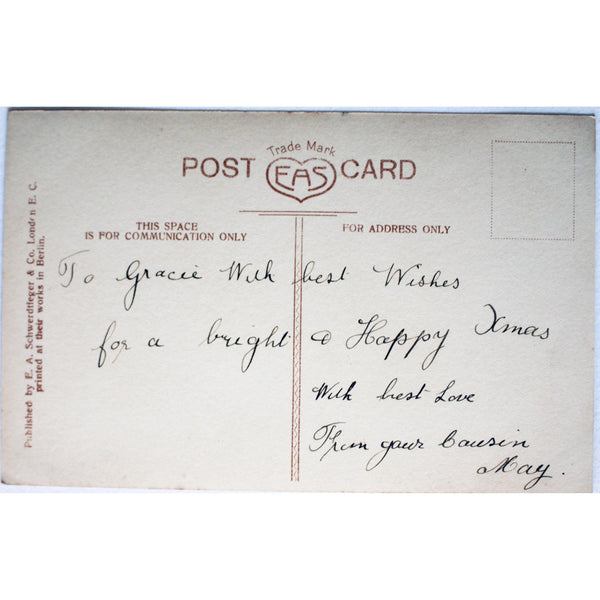 Trade Mark
POST EAS CARD
THIS SPACE
IS FOR COMMUNICATION ONLY
FOR ADDRESS ONLY
To Gracie With best Wishes
for a bright & Happy Xmas
With best Love
From your Cousin
May.
Published by E. A. Schwerdtfeger & Co. London E. C.
printed at their works in Berlin.